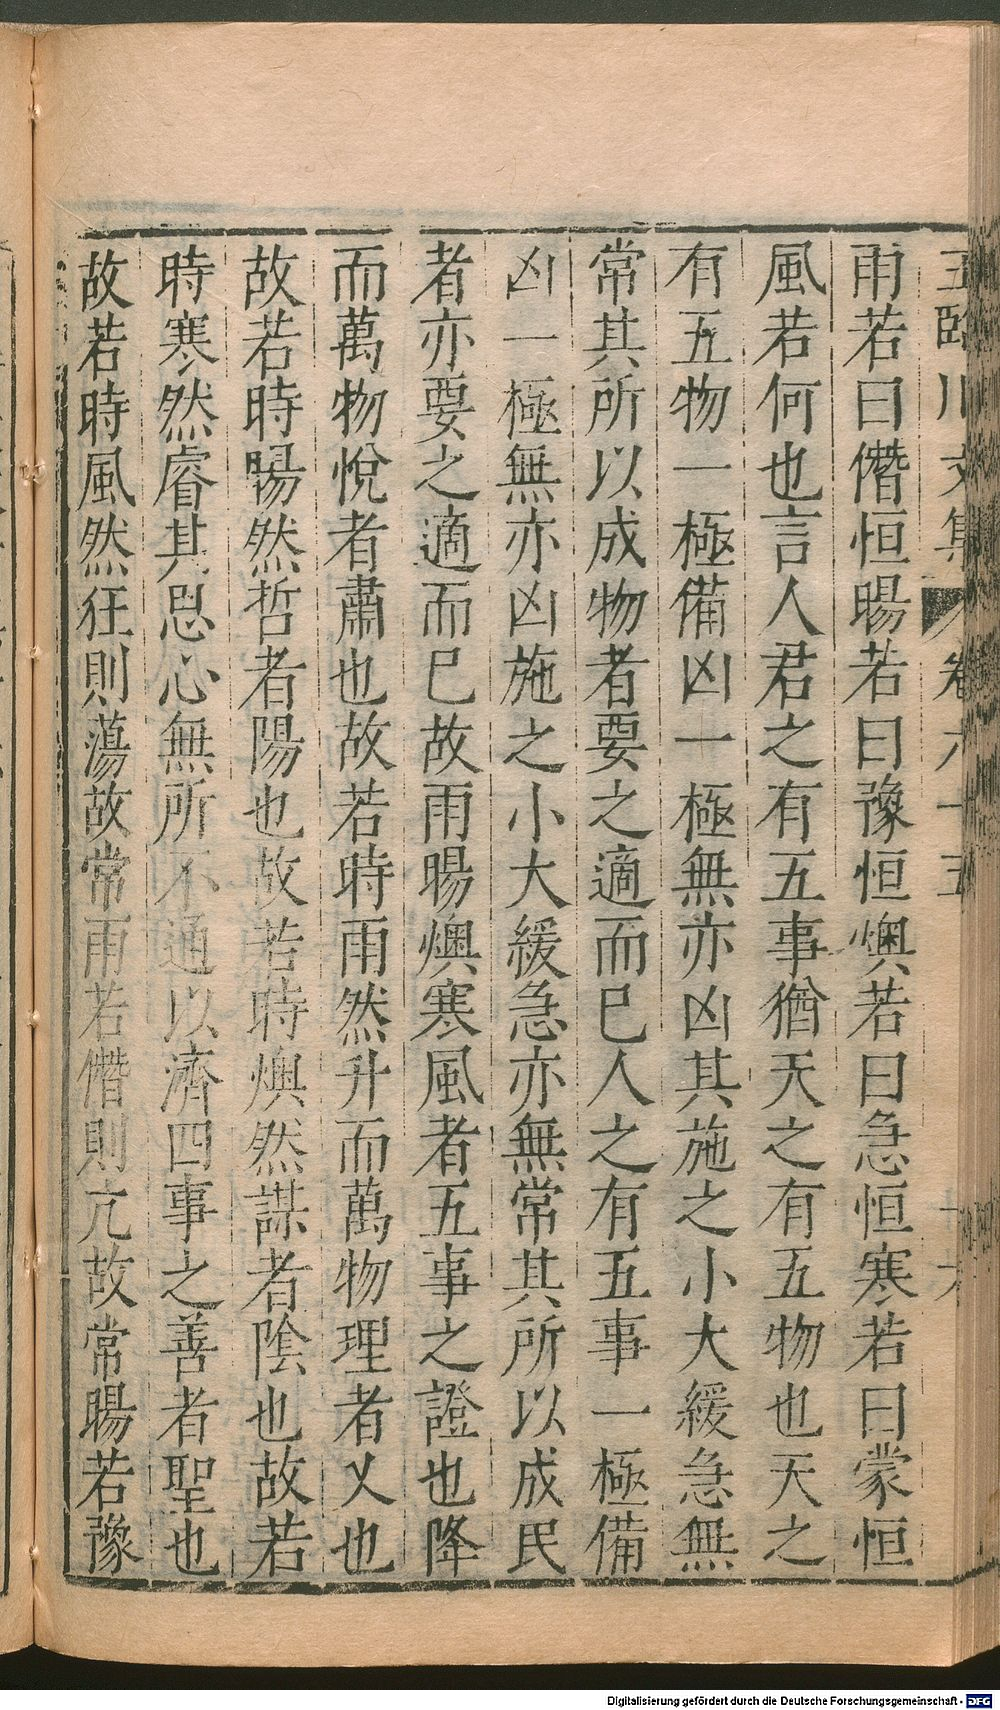 王臨川文集 卷六十五 十六
雨若曰僭恒暘若曰豫恒燠若曰急恒寒若曰蒙恒
風若何也言人君之有五事猶天之有五物也天之
有五物一極備凶一極無亦凶其施之小大緩急無
常其所以成物者要之適而巳人之有五事一極備
凶一極無亦凶施之小大緩急亦無常其所以成民
者亦要之適而巳故雨暘燠寒風者五事之證也降
而萬物悅者肅也故若時雨然升而萬物理者乂也
故若時暘然哲者陽也故若時燠然謀者陰也故若
時寒然睿其思心無所不通以濟四事之善者聖也
故若時風然狂則蕩故常雨若僭則亢故常暘若豫
Digitalisierung gefördert durch die Deutsche Forschungsgemeinschaft - DFG